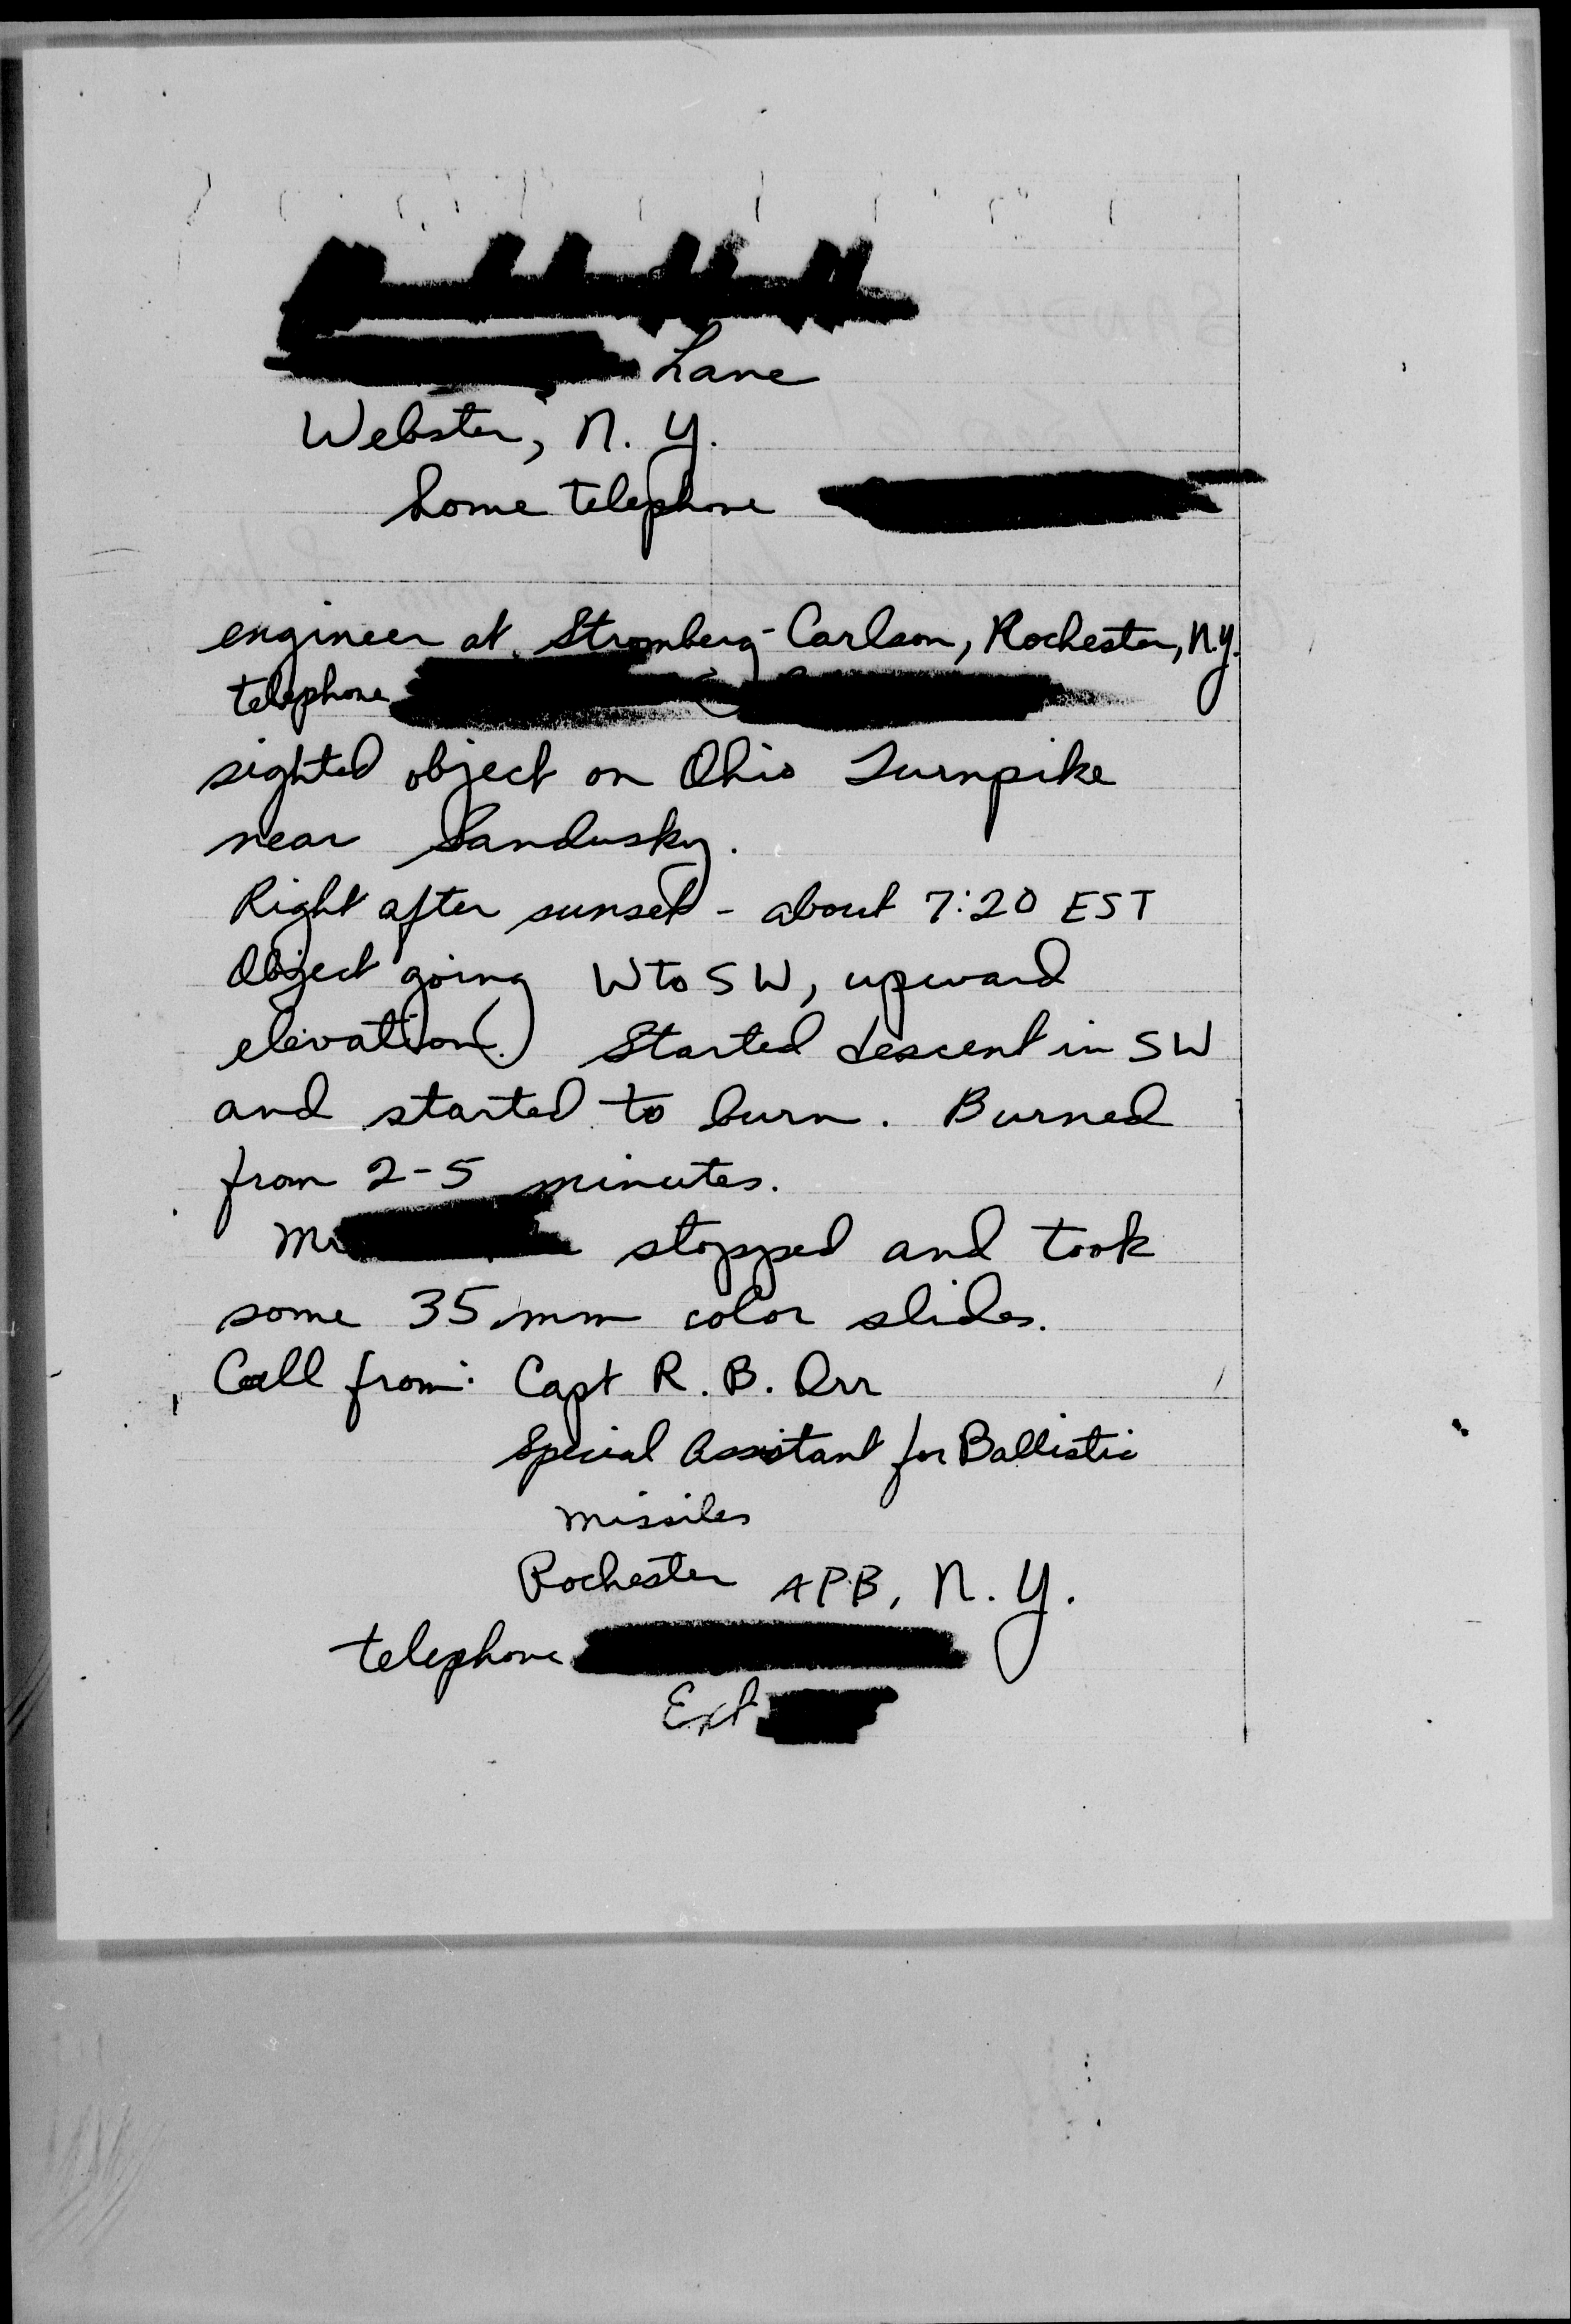 Lane
Webster, N. Y.
home telephone
engineer at Stromberg-Carlson, Rochester, N.Y.
telephone
sighted object on Ohio Turnpike
near Sandusky.
Right after sunset - about 7:20 EST
Object going W to SW, upward
elevation. Started descent in SW
and started to burn. Burned
from 2-5 minutes.
Mr stopped and took
some 35 mm color slides.
Call from: Capt R. B. Orr
Special Assistant for Ballistic
Missiles
Rochester APB, N. Y.
telephone
Ext